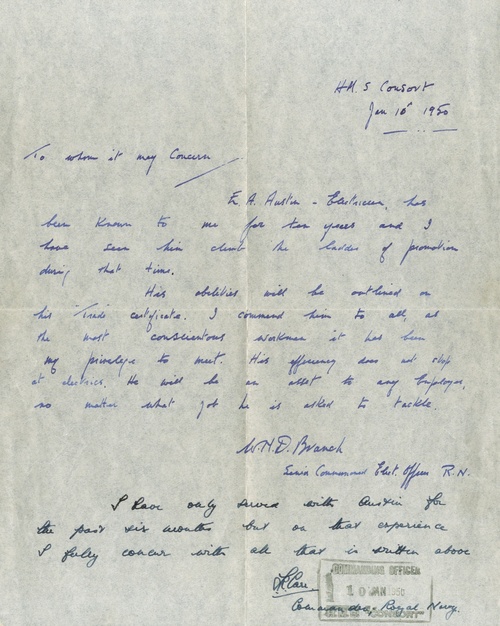 H.M.S Consort
Jan 10th 1950
To whom it may Concern
E. A. Austin - Electrician, has
been known to me for ten years and I
have seen him climb the ladder of promotion
during that time.
His abilities will be outlined on
his Trade certificate. I commend him to all, as
the most conscientous workman it has been
my privelege to meet. His efficiency does not stop
at electrics. He will be an asset to any Employer,
no matter what job he is asked to tackle.
W.H.D. Branch
Senior Commissioned Elect. Officer R.N.
I have only served with Austin for
the past six months but on that experience
I fully concur with all that is written above
COMMANDING OFFICER
10 JAN 1950
Commander, Royal Navy.
H.M.S. "CONSORT"